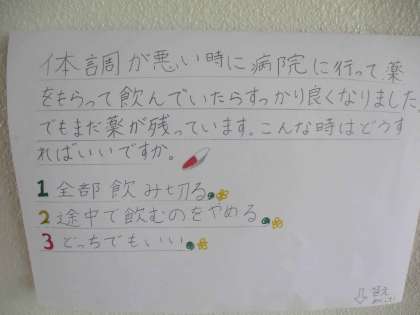 体調が悪い時に病院に行って、薬
をもらって飲んでいたらすっかり良くなりました。
でもまだ薬が残っています。こんな時はどうす
ればいいですか。
1 全部飲み切る。
2 途中で飲むのをやめる。
3 どっちでもいい。